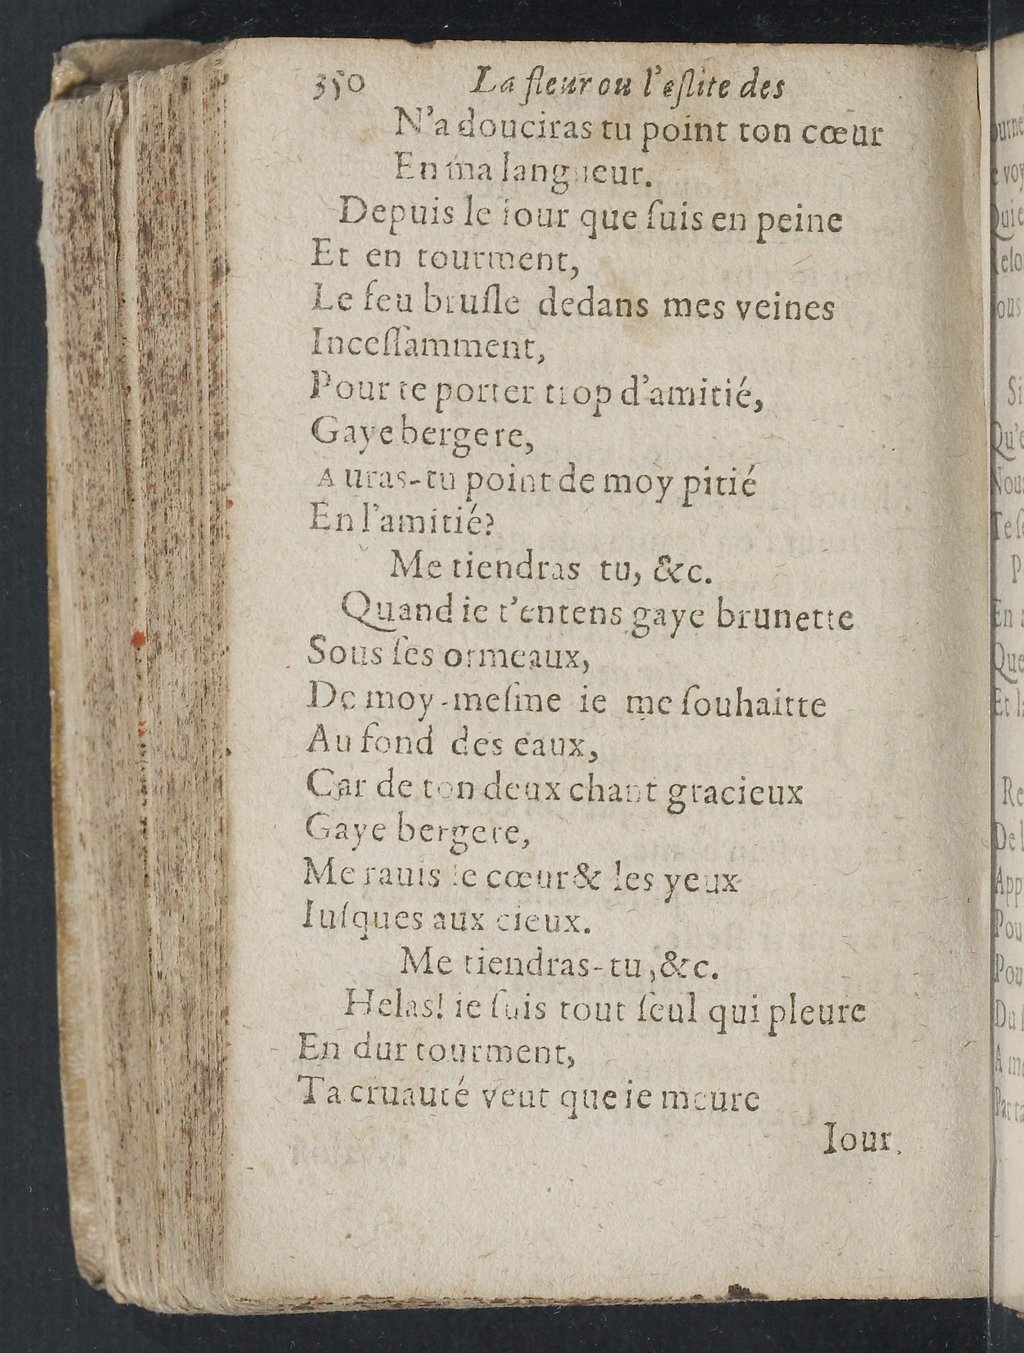 350 La fleur ou l'eſlite des
N'adouciras tu point ton cœur
En ma langueur.
Depuis le iour que ſuis en peine
Et en tourment,
Le feu bruſle dedans mes veines
Inceſſamment,
Pour te porter trop d'amitié,
Gaye bergere,
Auras-tu point de moy pitié
En l'amitié?
Me tiendras tu, &c.
Quand ie t'entens gaye brunette
Sous ſes ormeaux,
De moy-meſme ie me ſouhaitte
Au fond des eaux,
Car de ton deux chant gracieux
Gaye bergere,
Me rauis le cœur & les yeux
Iuſques aux cieux.
Me tiendras-tu, &c.
Helas! ie ſuis tout ſeul qui pleure
En dur tourment,
Ta cruauté veut que ie meure
Iour.